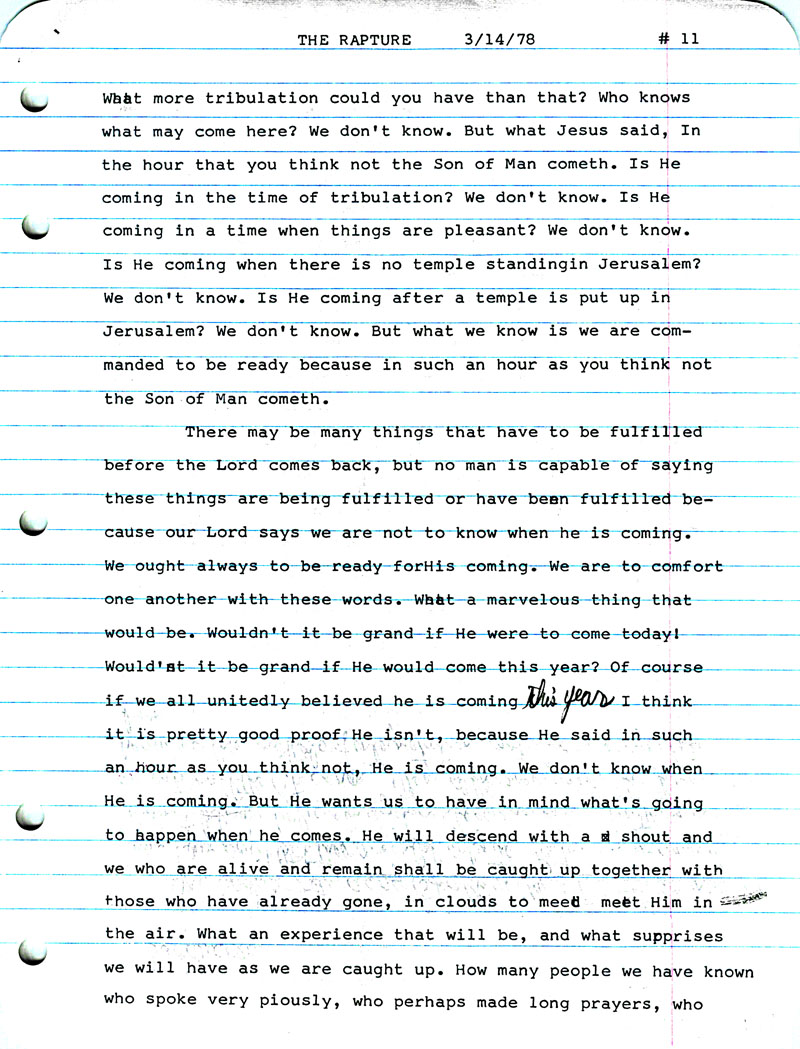 THE RAPTURE 3/14/78 # 11
What more tribulation could you have than that? Who knows
what may come here? We don't know. But what Jesus said, In
the hour that you think not the Son of Man cometh. Is He
coming in the time of tribulation? We don't know. Is He
coming in a time when things are pleasant? We don't know.
Is He coming when there is no temple standingin Jerusalem?
We don't know. Is He coming after a temple is put up in
Jerusalem? We don't know. But what we know is we are com-
manded to be ready because in such an hour as you think not
the Son of Man cometh.
There may be many things that have to be fulfilled
before the Lord comes back, but no man is capable of saying
these things are being fulfilled or have been fulfilled be-
cause our Lord says we are not to know when he is coming.
We ought always to be ready forHis coming. We are to comfort
one another with these words. What a marvelous thing that
would be. Wouldn't it be grand if He were to come today!
Would'nt it be grand if He would come this year? Of course
if we all unitedly believed he is coming this year I think
it is pretty good proof He isn't, because He said in such
an hour as you think not, He is coming. We don't know when
He is coming. But He wants us to have in mind what's going
to happen when he comes. He will descend with a shout and
we who are alive and remain shall be caught up together with
those who have already gone, in clouds to meed meet Him in
the air. What an experience that will be, and what supprises
we will have as we are caught up. How many people we have known
who spoke very piously, who perhaps made long prayers, who